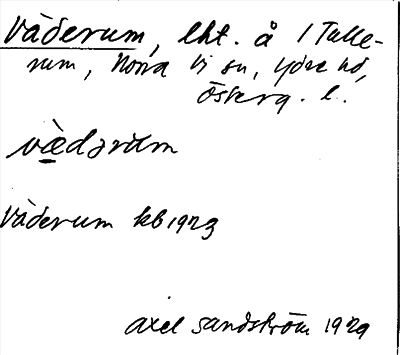 Väderum, lht. å 1 Talle-
rum, Norra Vi sn, Ydre hd,
Österg. l.
vædərum
Väderum kb 1923
Axel Sandström 1929